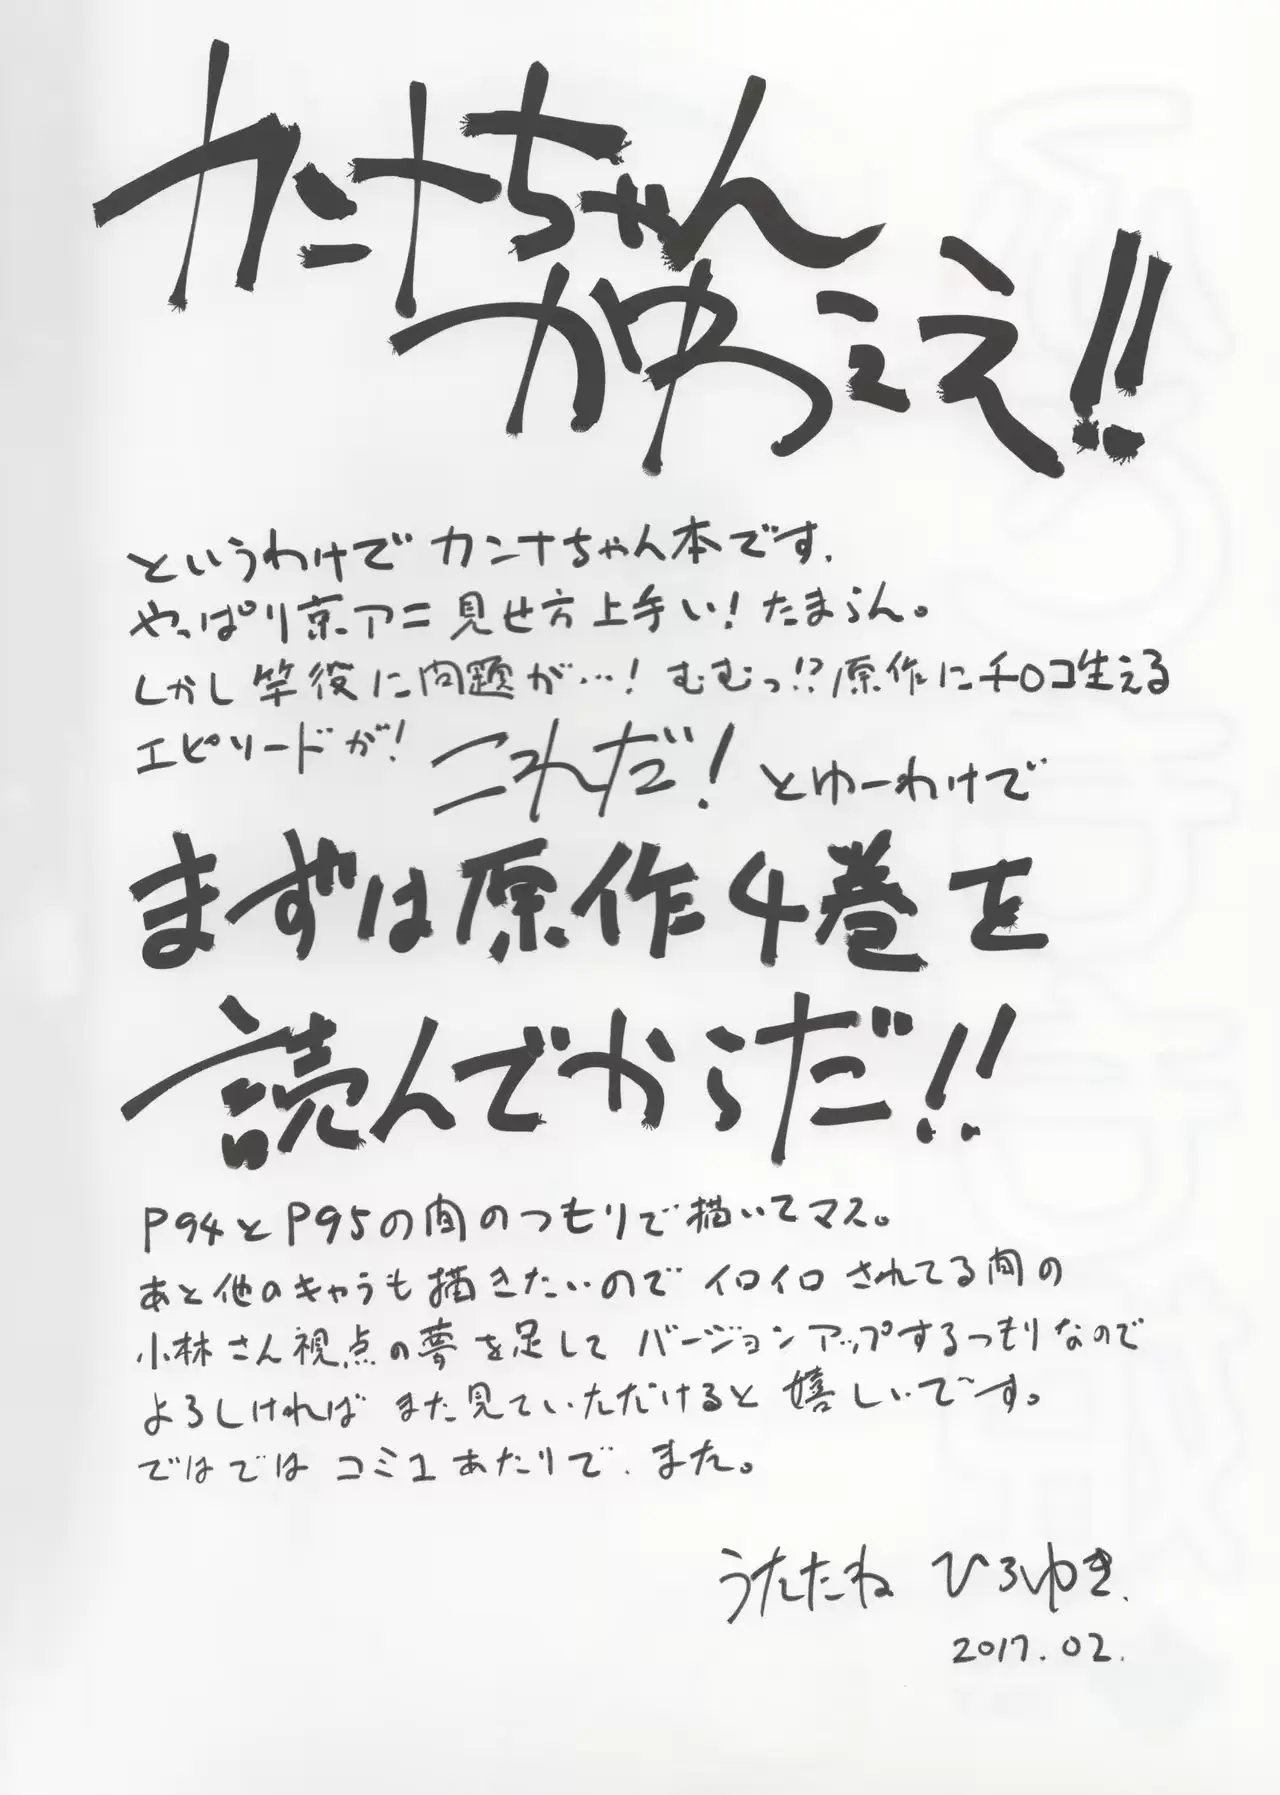 カンナちゃん
かゆぅぇえ!!
というわけで カンナちゃん本です.
やっぱり京アニ 見せ方上手い! たまらん。
しかし竿役に問題が…! むむっ!? 原作にチ○コ生える
エピソードが! これだ! とゆーわけで
まずは原作4巻を
読んでからだ!!
P94とP95の間のつもりで描いてマス。
あと他のキャラも描きたいので イロイロされてる間の
小林さん視点の夢を足して バージョンアップするつもりなので
よろしければ また見ていただけると 嬉しいで〜す。
ではでは コミ1あたりで. また。
うたたね ひろゆき.
2017.02.